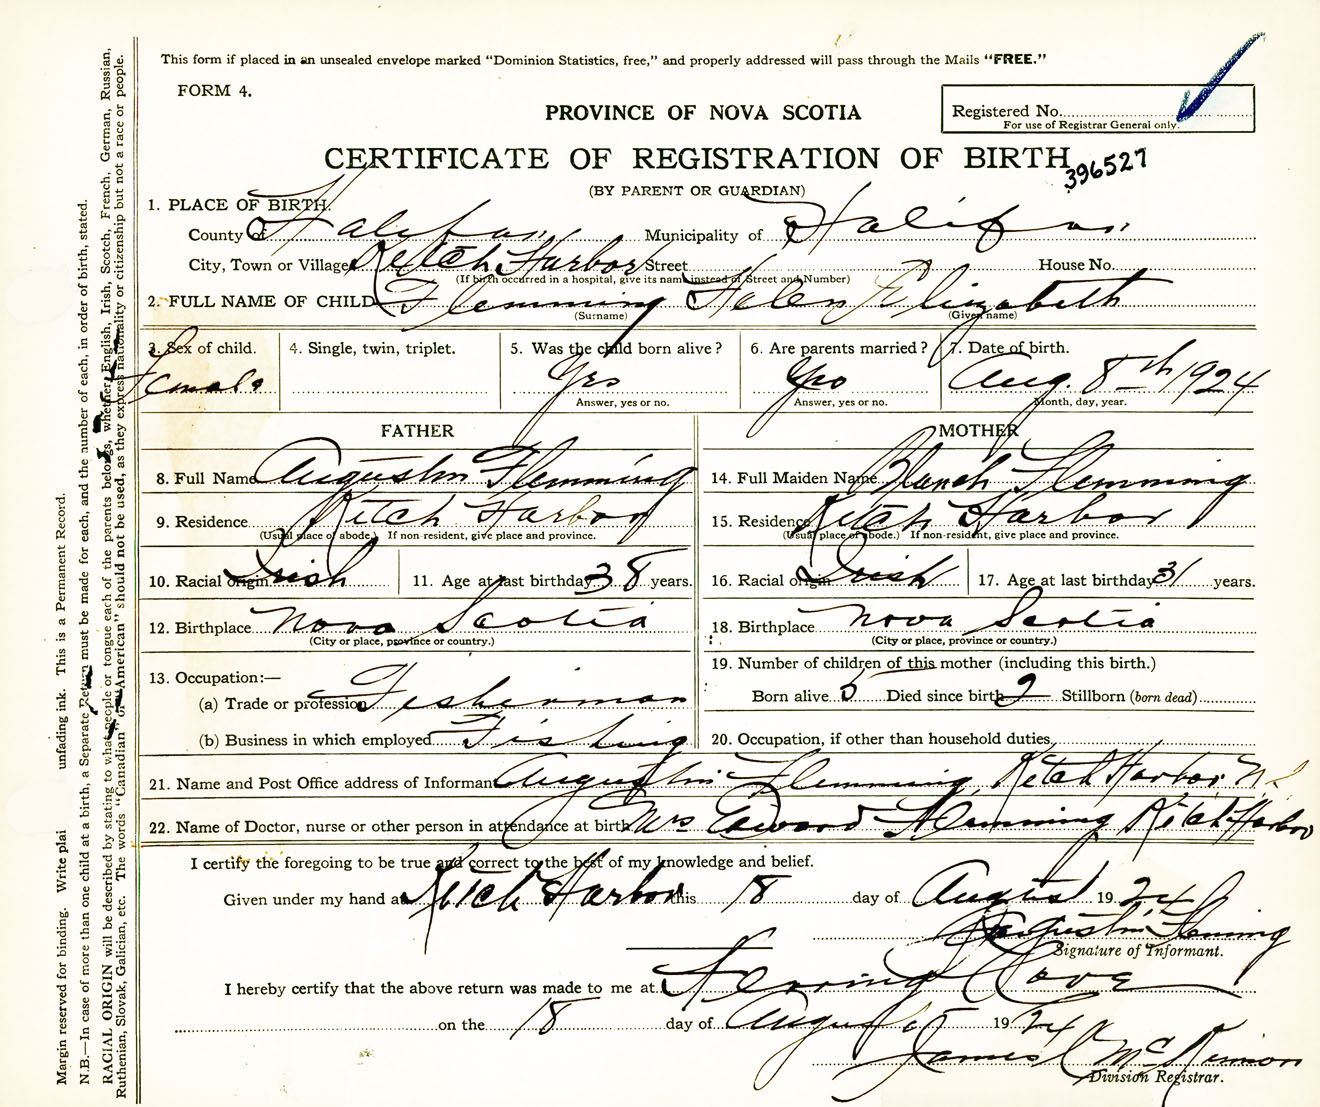 This form if placed in an unsealed envelope marked "Dominion Statistics, free," and properly addressed will pass through the Mails "FREE."
FORM 4.
PROVINCE OF NOVA SCOTIA
Registered No.
For use of Registrar General only.
CERTIFICATE OF REGISTRATION OF BIRTH
396527
(BY PARENT OR GUARDIAN)
1. PLACE OF BIRTH.
County of Halifax Municipality of Halifax
City, Town or Village Ketch Harbor Street House No.
(If birth occurred in a hospital, give its name instead of Street and Number)
2. FULL NAME OF CHILD Flemming Helen Elizabeth
(Surname) (Given name)
3. Sex of child. 4. Single, twin, triplet. 5. Was the child born alive? 6. Are parents married? 7. Date of birth.
Female Yes Yes Aug. 8th 1924
Answer, yes or no. Answer, yes or no. Month, day, year.
FATHER MOTHER
8. Full Name Augustin Flemming 14. Full Maiden Name Blanch Flemming
9. Residence Ketch Harbor 15. Residence Ketch Harbor
(Usual place of abode.) If non-resident, give place and province. (Usual place of abode.) If non-resident, give place and province.
10. Racial origin Irish 11. Age at last birthday 38 years. 16. Racial origin Irish 17. Age at last birthday 31 years.
12. Birthplace Nova Scotia 18. Birthplace Nova Scotia
(City or place, province or country.) (City or place, province or country.)
13. Occupation:— 19. Number of children of this mother (including this birth.)
(a) Trade or profession Fisherman Born alive 5 Died since birth 2 Stillborn (born dead)
(b) Business in which employed Fishing 20. Occupation, if other than household duties
21. Name and Post Office address of Informant Augustin Flemming, Ketch Harbor N.S
22. Name of Doctor, nurse or other person in attendance at birth Mrs Edward Flemming Ketch Harbor
I certify the foregoing to be true and correct to the best of my knowledge and belief.
Given under my hand at Ketch Harbor this 18 day of August 1924
Augustin Fleming
Signature of Informant.
I hereby certify that the above return was made to me at Herring Cove
on the 18 day of August 1924
James McKinnon
Division Registrar.
Margin reserved for binding. Write plai unfading ink. This is a Permanent Record.
N.B.—In case of more than one child at a birth, a Separate Return must be made for each, and the number of each, in order of birth, stated.
RACIAL ORIGIN will be described by stating to what people or tongue each of the parents belongs, whether English, Irish, Scotch, French, German, Russian,
Ruthenian, Slovak, Galician, etc. The words "Canadian" or "American" should not be used, as they express nationality or citizenship but not a race or people.